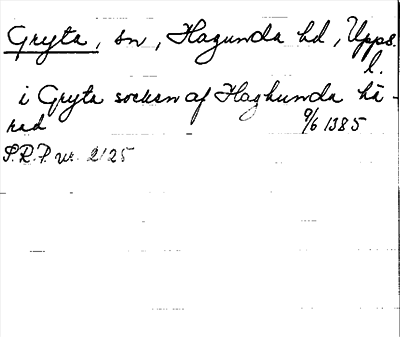 Gryta, sn, Hagunda hd, Upps.
l.
i Gryta socken af Haghunda hä-
rad 9/6 1385
S.R.P. nr. 2125